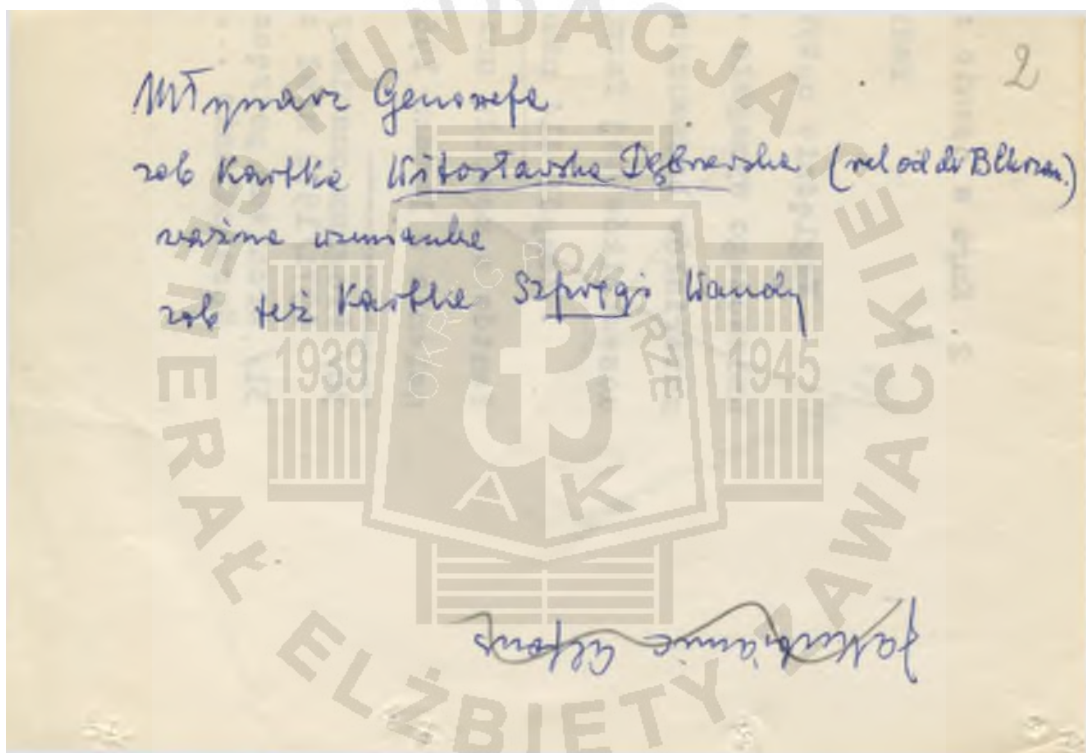 2
Młynarz Genowefa
zob Kartka Witosławska Dąbrowska (rel od dr
ważne wzmianka
zob też Kartka Szpręgi Wandy
Jakubianiec Alfons
FUNDACJA GENERAŁ ELŻBIETY ZAWACKIEJ
OKRĘG POMORZE
1939 1945
AK